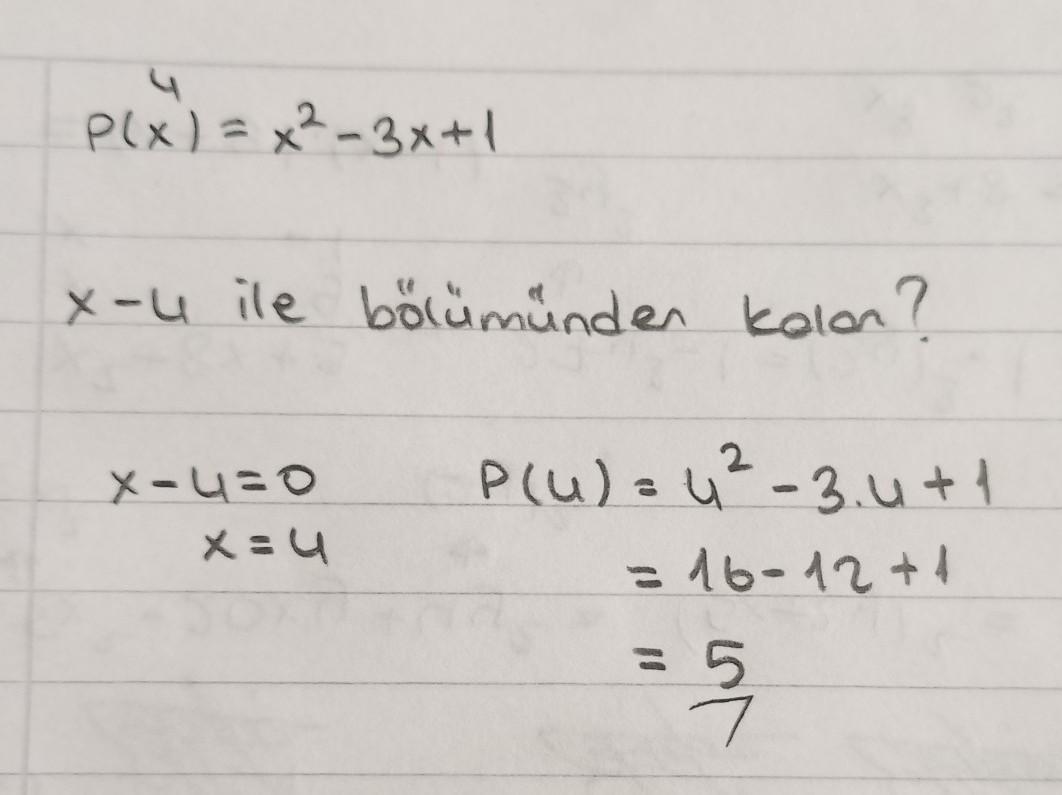 4
P(x) = x² - 3x + 1
x - 4 ile bölümünden kalan?
x - 4 = 0 P(4) = 4² - 3.4 + 1
x = 4 = 16 - 12 + 1
= 5